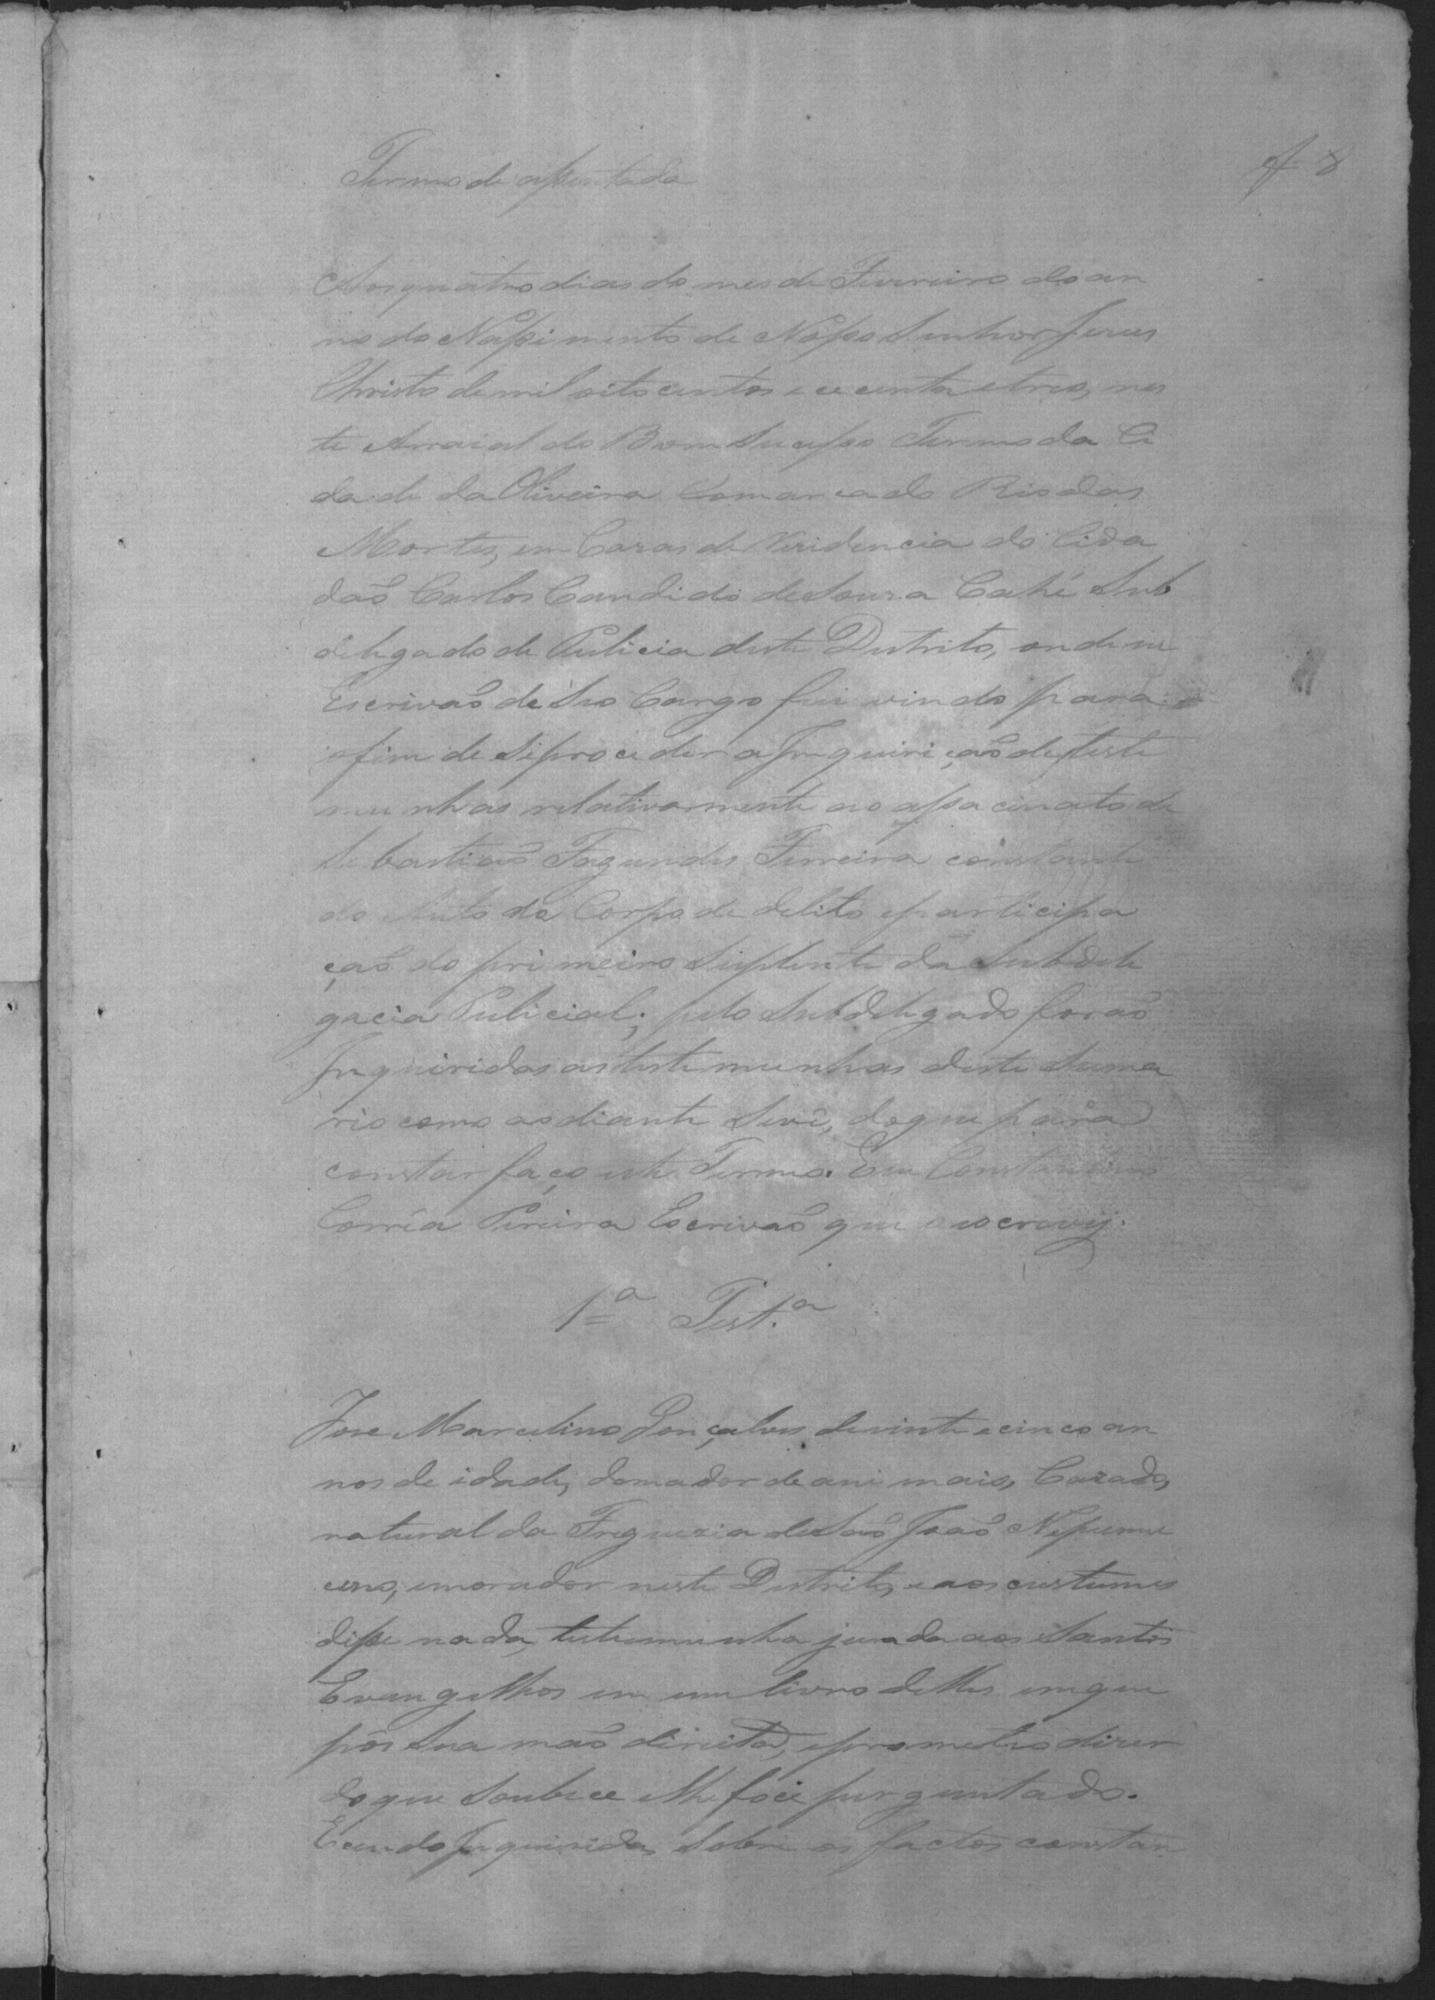 Termo de assentada
f 8
Aos quatro dias do mes de Fevereiro do an
no do Nassimento de Nosso Senhor Jesus
Christo de mil oito centos e cecenta e tres, nes
te Arraial do Bom Sucesso Termo da Ci
da de da Oliveira Comarca do Rio das
Mortes, em Cazas de Rezidencia do Cida
daõ Carlos Candido de Souza Cahé Sub
delegado de Pulicia deste Destrito, onde eu
Escrivaõ de Seo Cargo fui vindo para
o fim de Se proceder a Inquiriçaõ de teste
munhas relativamente ao assacinato de
Sebastiaõ Fagundes Ferreira constante
do Auto de Corpo de delito e participa
çaõ do primeiro Suplente da Subdele
gacia Pulicial; pelo Subdelegado foraõ
Inqueridas as testemunhas deste Suma
rio como ao diante Se vê, do que para
constar faço este Termo. Eu Constancio
Corrêa Pereira Escrivaõ que o escrevy.
1ª Test.ª
Jose Marcelino Gonçalves de vinte e cinco an
nos de idade, domador de animais, Cazado,
natural da Freguezia de Saõ Joaõ Nepumu
ceno, e morador neste Destrito, e aos custumes
disse nada, testemunha jurada aos Santos
Evangelhos em um livro delles em que
pôs Sua maõ direita, e prometeo dizer
do que Soubece e lhe foce perguntado.
E cendo Inquirida Sobre os factos constan